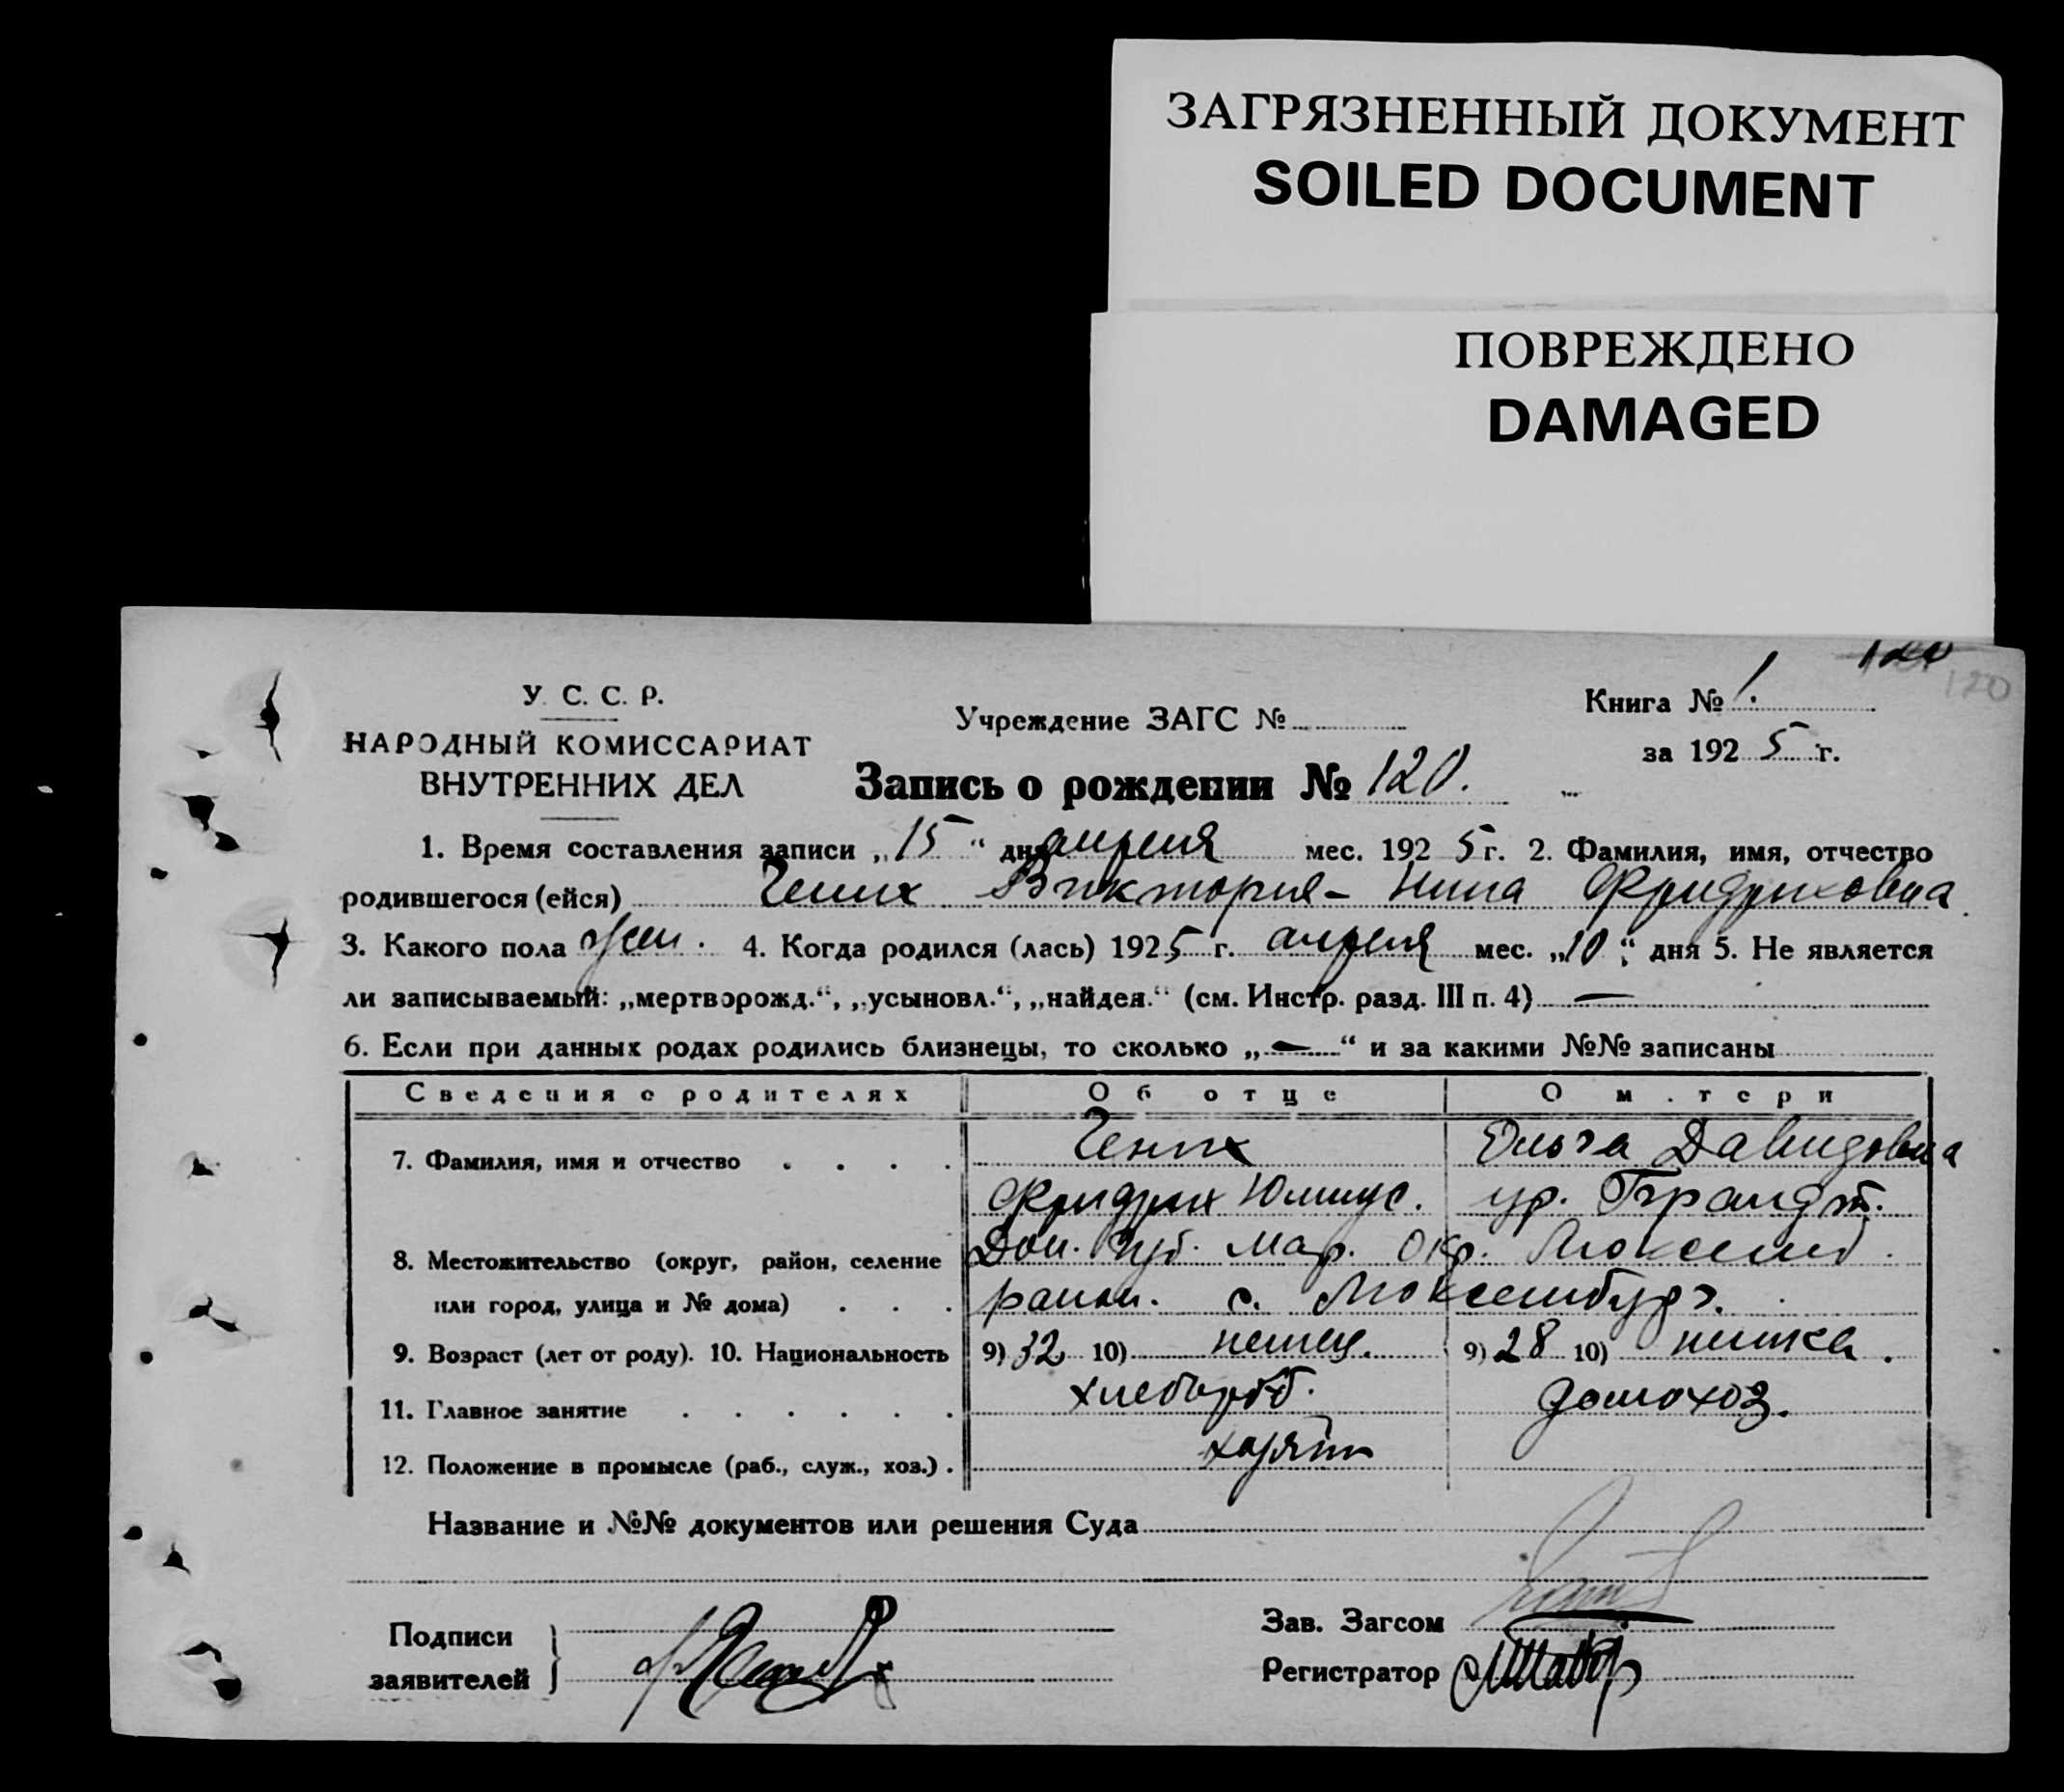 ЗАГРЯЗНЕННЫЙ ДОКУМЕНТ
SOILED DOCUMENT
ПОВРЕЖДЕНО
DAMAGED
120
У. С. С. Р.
НАРОДНЫЙ КОМИССАРИАТ
ВНУТРЕННИХ ДЕЛ
Учреждение ЗАГС №
Книга № 1.
за 1925 г.
Запись о рождении № 120.
1. Время составления записи „15“ дня апреля мес. 1925 г. 2. Фамилия, имя, отчество
родившегося (ейся) Гених Виктория- Нина Фридриховна
3. Какого пола жен. 4. Когда родился (лась) 1925 г. апреля мес. „10“ дня 5. Не является
ли записываемый: „мертворожд.“, „усыновл.“, „найден.“ (см. Инстр. разд. III п. 4) —
6. Если при данных родах родились близнецы, то сколько „—“ и за какими №№ записаны
Сведения о родителях Об отце О м.тери
7. Фамилия, имя и отчество Гених Ольга Давидовна
Фридрих Юлиус. ур. Брандт.
8. Местожительство (округ, район, селение Дон. губ. Мар. Окр. Люксемб.
или город, улица и № дома) район. с. Люксембург.
9. Возраст (лет от роду). 10. Национальность 9) 32 10) немец. 9) 28 10) немка.
11. Главное занятие хлебороб. домохоз.
12. Положение в промысле (раб., служ., хоз.) хозяин
Название и №№ документов или решения Суда
Подписи
заявителей
Зав. Загсом
Регистратор